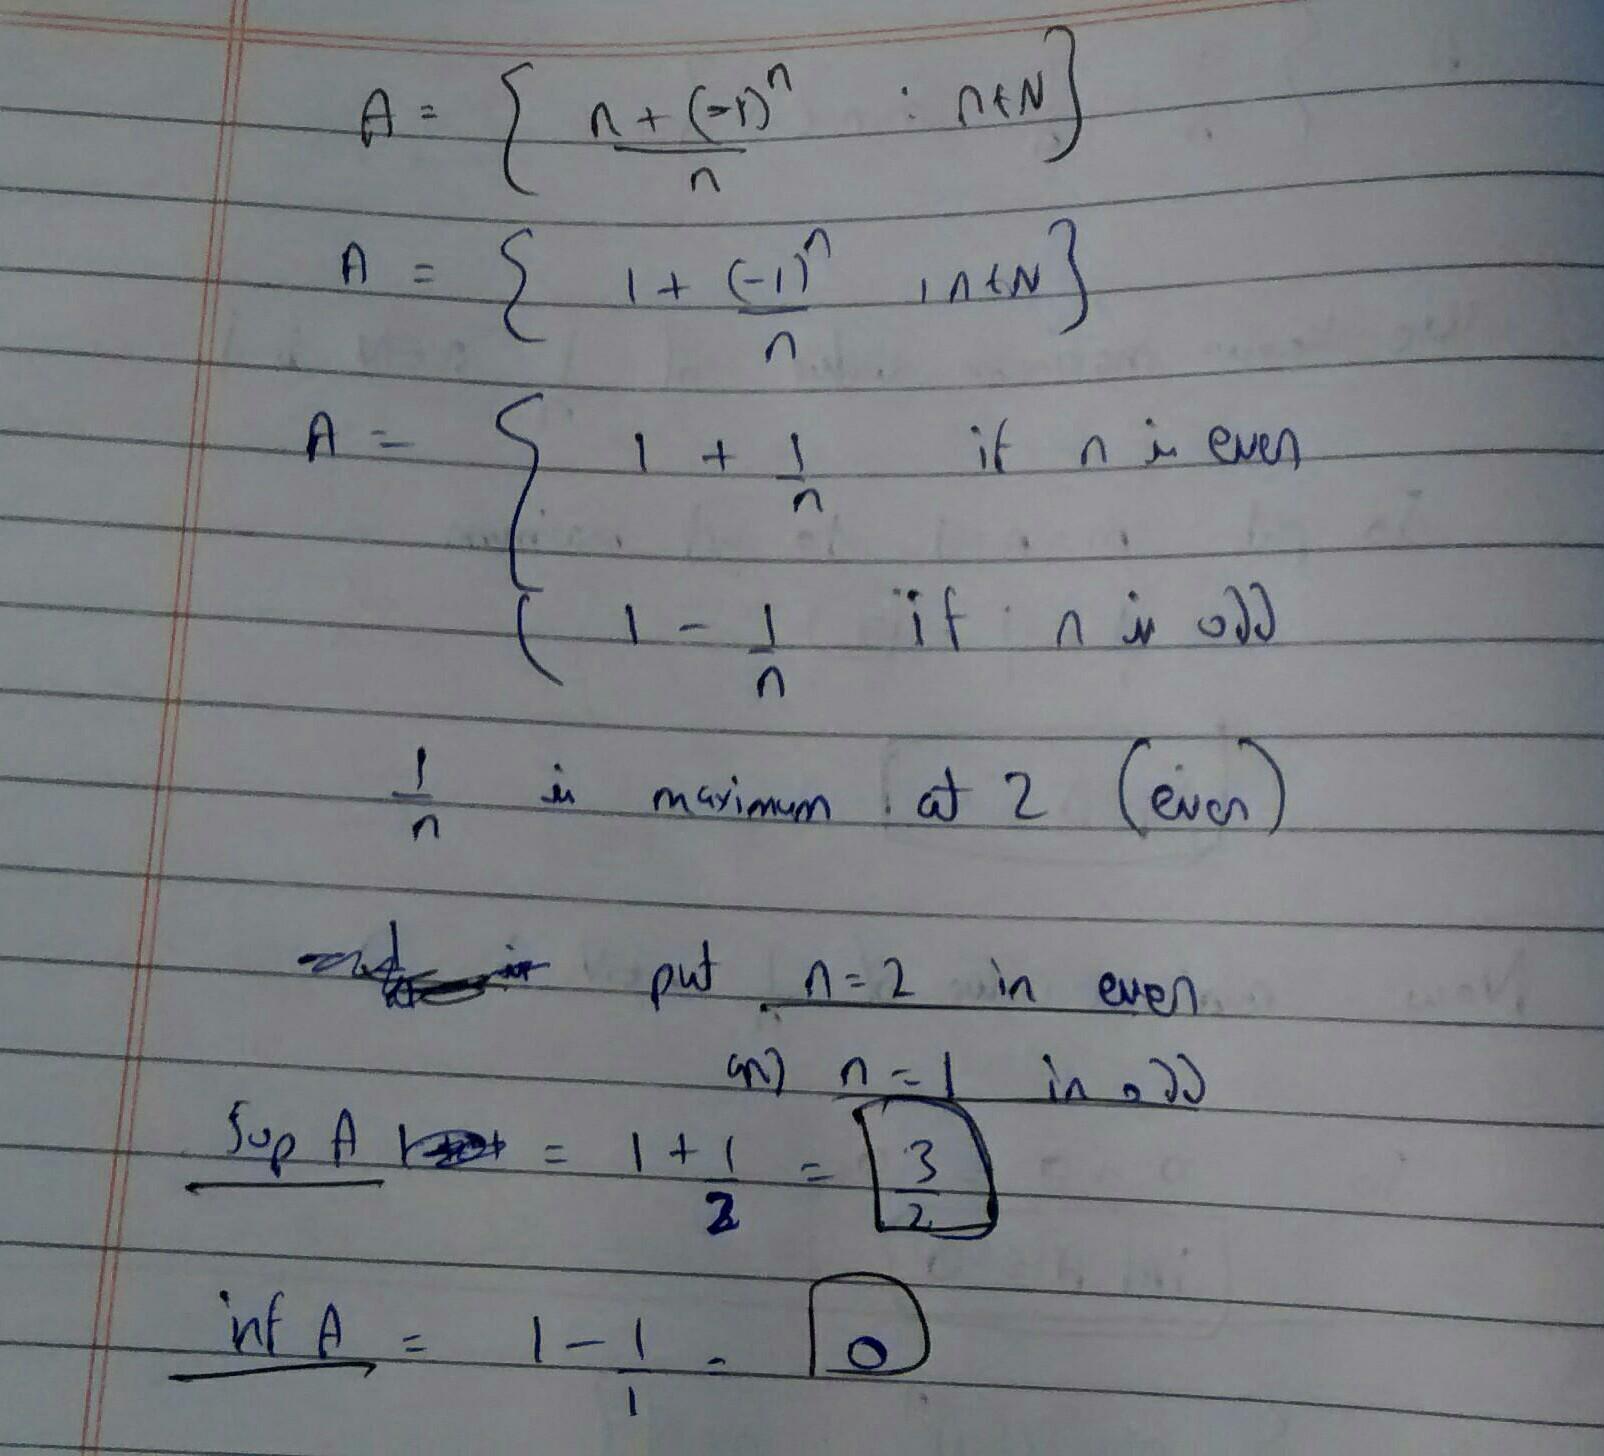 A = { n + (-1)ⁿ / n : n∈N }
A = { 1 + (-1)ⁿ / n , n∈N }
A = { 1 + 1/n if n is even
1 - 1/n if n is odd
1/n is maximum at 2 (even)
put n=2 in even
and n=1 in odd
Sup A = 1 + 1/2 = 3/2
inf A = 1 - 1/1 = 0